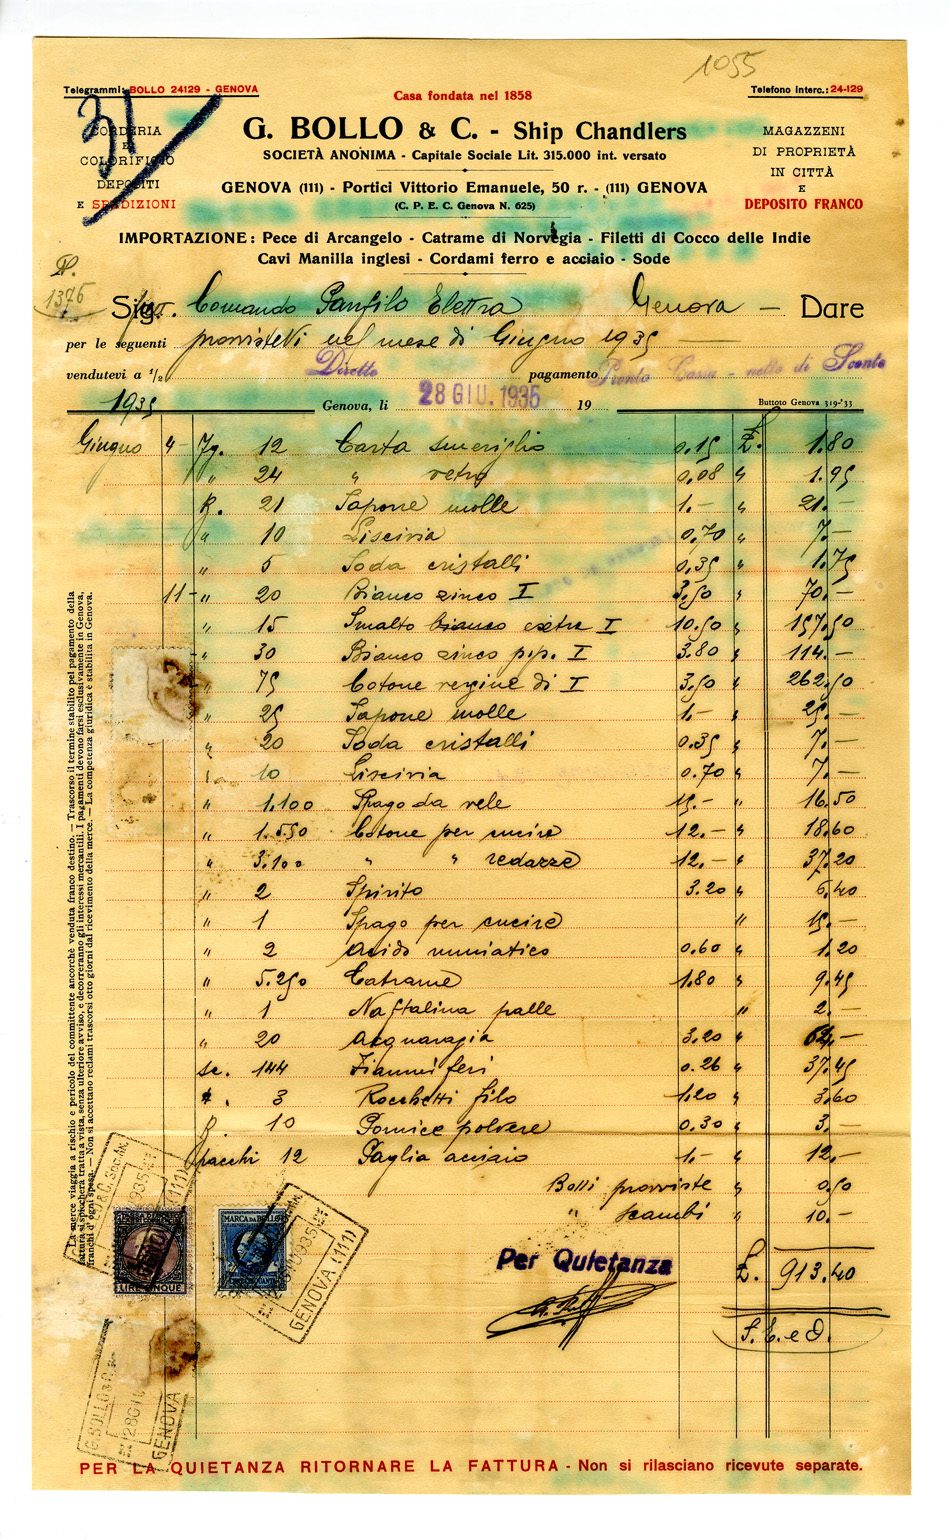 1055
Telegrammi: BOLLO 24129 - GENOVA
Casa fondata nel 1858
Telefono interc.: 24-129
31
CORDERIA
E
COLORIFICIO
DEPOSITI
E SPEDIZIONI
G. BOLLO & C. - Ship Chandlers
SOCIETÀ ANONIMA - Capitale Sociale Lit. 315.000 int. versato
GENOVA (111) - Portici Vittorio Emanuele, 50 r. - (111) GENOVA
(C. P. E. C. Genova N. 625)
MAGAZZENI
DI PROPRIETÀ
IN CITTÀ
E
DEPOSITO FRANCO
IMPORTAZIONE: Pece di Arcangelo - Catrame di Norvegia - Filetti di Cocco delle Indie
Cavi Manilla inglesi - Cordami ferro e acciaio - Sode
N.
1376
Sig. Comando Panfilo Elettra Genova — Dare
per le seguenti provviste nel mese di Giugno 1935
vendutevi a 1/2 Diretto pagamento Pronta Cassa - netto di Sconto
1935 Genova, li 28 GIU. 1935 19
Buttoto Genova 319-'33
Giugno 4 - Fg. 12 Carta smeriglio 0.15 £. 1.80
" 24 " vetro 0.08 " 1.95
K. 21 Sapone molle 1.- " 21.-
" 10 Liscivia 0.70 " 7.-
" 5 Soda cristalli 0.35 " 1.75
11 - " 20 Bianco zinco I 3.50 " 70.-
" 15 Smalto bianco extra I 10.50 " 157.50
" 30 Bianco zinco pp. I 3.80 " 114.-
" 75 Cotone vergine di I 3.50 " 262.50
" 25 Sapone molle 1.- " 25.-
" 20 Soda cristalli 0.35 " 7.-
" 10 Liscivia 0.70 " 7.-
" 1.100 Spago da vele 15.- " 16.50
" 1.550 Cotone per cucire 12.- " 18.60
" 3.100 " " redazze 12.- " 37.20
" 2 Spirito 3.20 " 6.40
" 1 Spago per cucire " 15.-
" 2 Acido muriatico 0.60 " 1.20
" 5.250 Catrame 1.80 " 9.45
" 1 Naftalina palle " 2.-
" 20 Acquaragia 3.20 " 64.-
Sc. 144 Fiammiferi 0.26 " 37.45
3 Rocchetti filo 1.20 " 3.60
K. 10 Pomice polvere 0.30 " 3.-
pacchi 12 Paglia acciaio 1.- " 12.-
Bolli provviste " 0.50
" scambi " 10.-
Per Quietanza
£. 913.40
S. E. e O.
La merce viaggia a rischio e pericolo del committente ancorchè venduta franco destino. — Trascorso il termine stabilito pel pagamento della
fattura si spiccherà tratta a vista, senza ulteriore avviso, e decorreranno gli interessi mercantili. I pagamenti devono farsi esclusivamente in Genova,
franchi d'ogni spesa. — Non si accettano reclami trascorsi otto giorni dal ricevimento della merce. — La competenza giuridica è stabilita in Genova.
LIRE CINQUE
MARCA DA BOLLO
GENOVA (111)
G. BOLLO & C.
28 GIU
GENOVA
PER LA QUIETANZA RITORNARE LA FATTURA - Non si rilasciano ricevute separate.